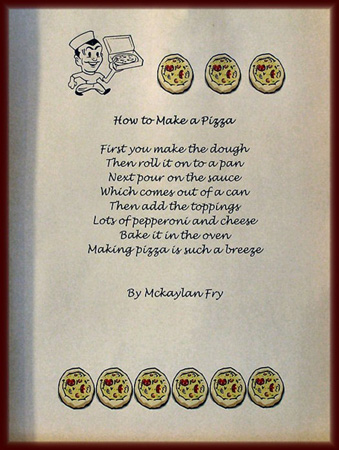 How to Make a Pizza
First you make the dough
Then roll it on to a pan
Next pour on the sauce
Which comes out of a can
Then add the toppings
Lots of pepperoni and cheese
Bake it in the oven
Making pizza is such a breeze
By Mckaylan Fry